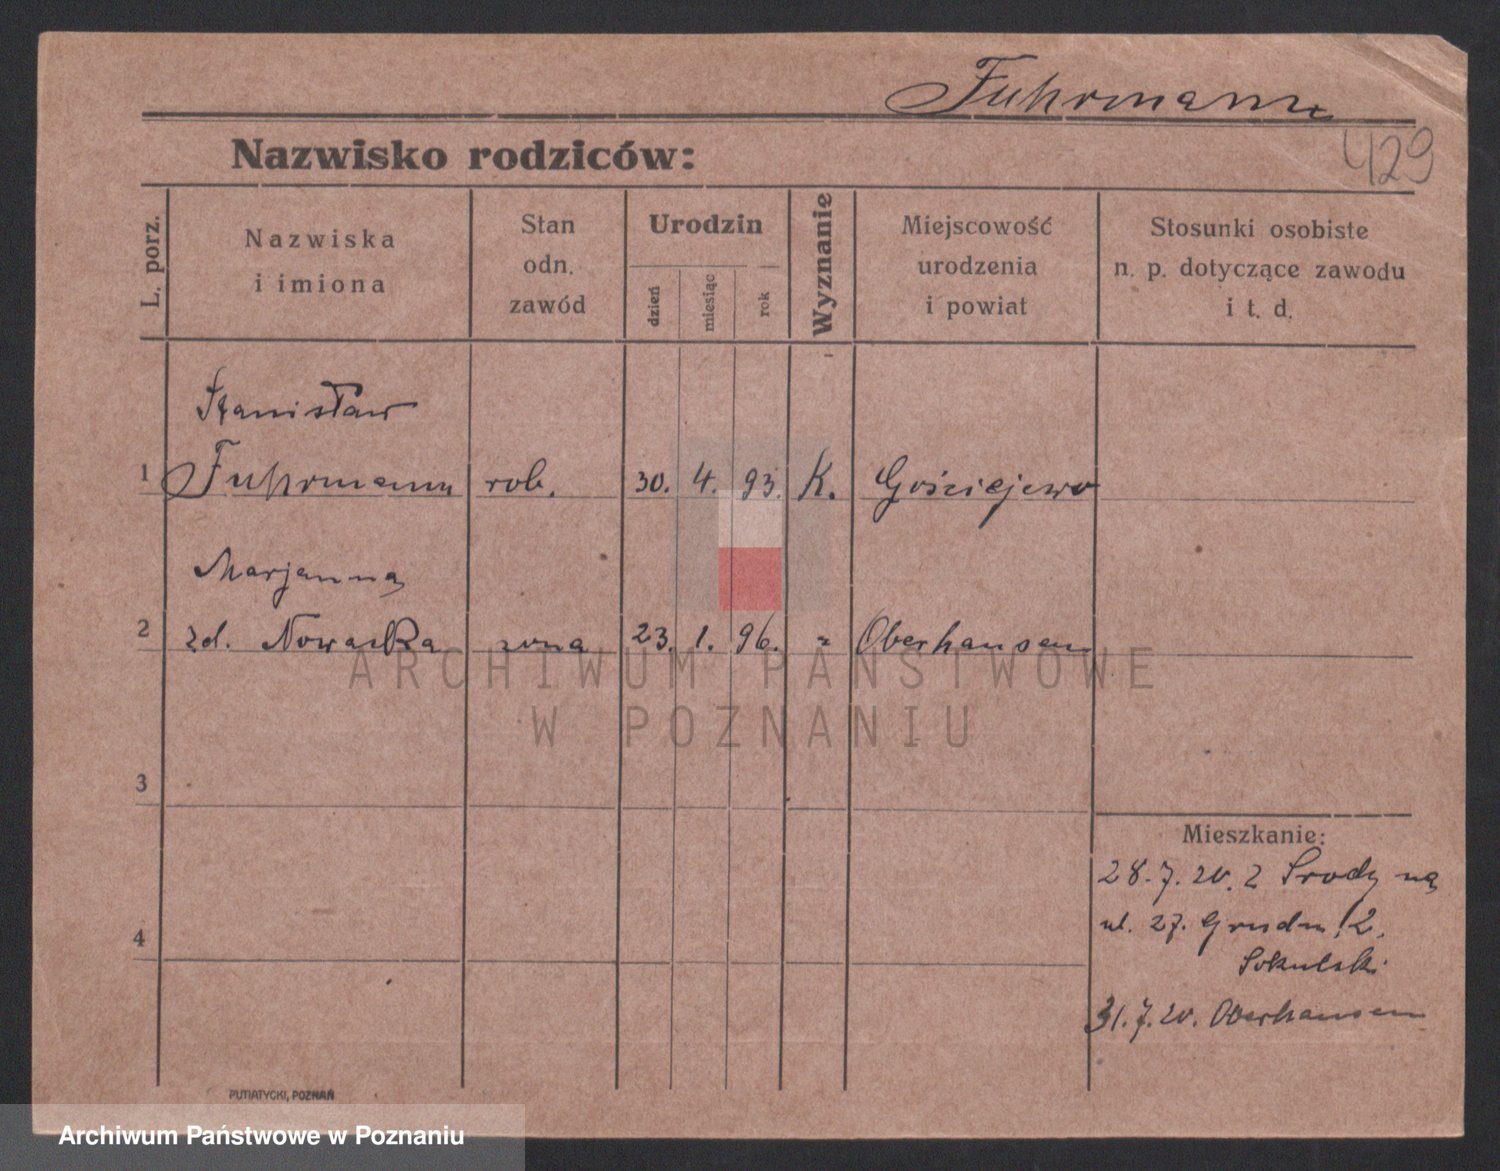 Fuhrmann
429
Nazwisko rodziców:
L. porz.
Nazwiska
i imiona
Stan
odn.
zawód
Urodzin
dzień
miesiąc
rok
Wyznanie
Miejscowość
urodzenia
i powiat
Stosunki osobiste
n. p. dotyczące zawodu
i t. d.
Stanisław
1 Fuhrmann rob. 30. 4. 93. K. Gościejewo
Marjanna
2 zd. Nowacka żona 23. 1. 96. " Oberhausen
ARCHIWUM PAŃSTWOWE
W POZNANIU
3
Mieszkanie:
28.7.20. z Środy na
ul. 27. Grudn. 12.
4
Sokulski
31.7.20. Oberhausen
PUTIATYCKI, POZNAŃ
Archiwum Państwowe w Poznaniu